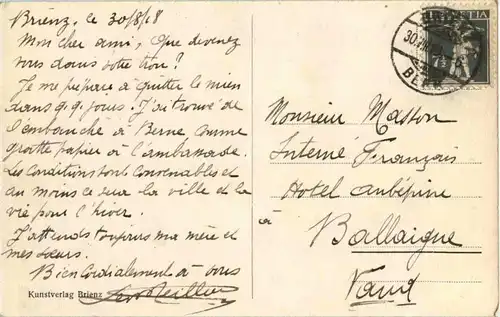 Brienz, le 30/8/18
Mon cher ami, que devenez
vous dans votre trou?
Je me prépare à quitter le mien
dans q.q. jours. J'ai trouvé de
l'embauche à Berne comme
gratte papier à l'ambassade.
Les Conditions sont Convenables et
au moins ce sera la ville et la
vie pour l'hiver.
J'attends toujours ma mère et
mes sœurs.
Bien Cordialement à vous
Kunstverlag Brienz
HELVETIA
7½
Monsieur Masson
Interné Français
Hotel aubépine
à
Ballaigue
Vaud